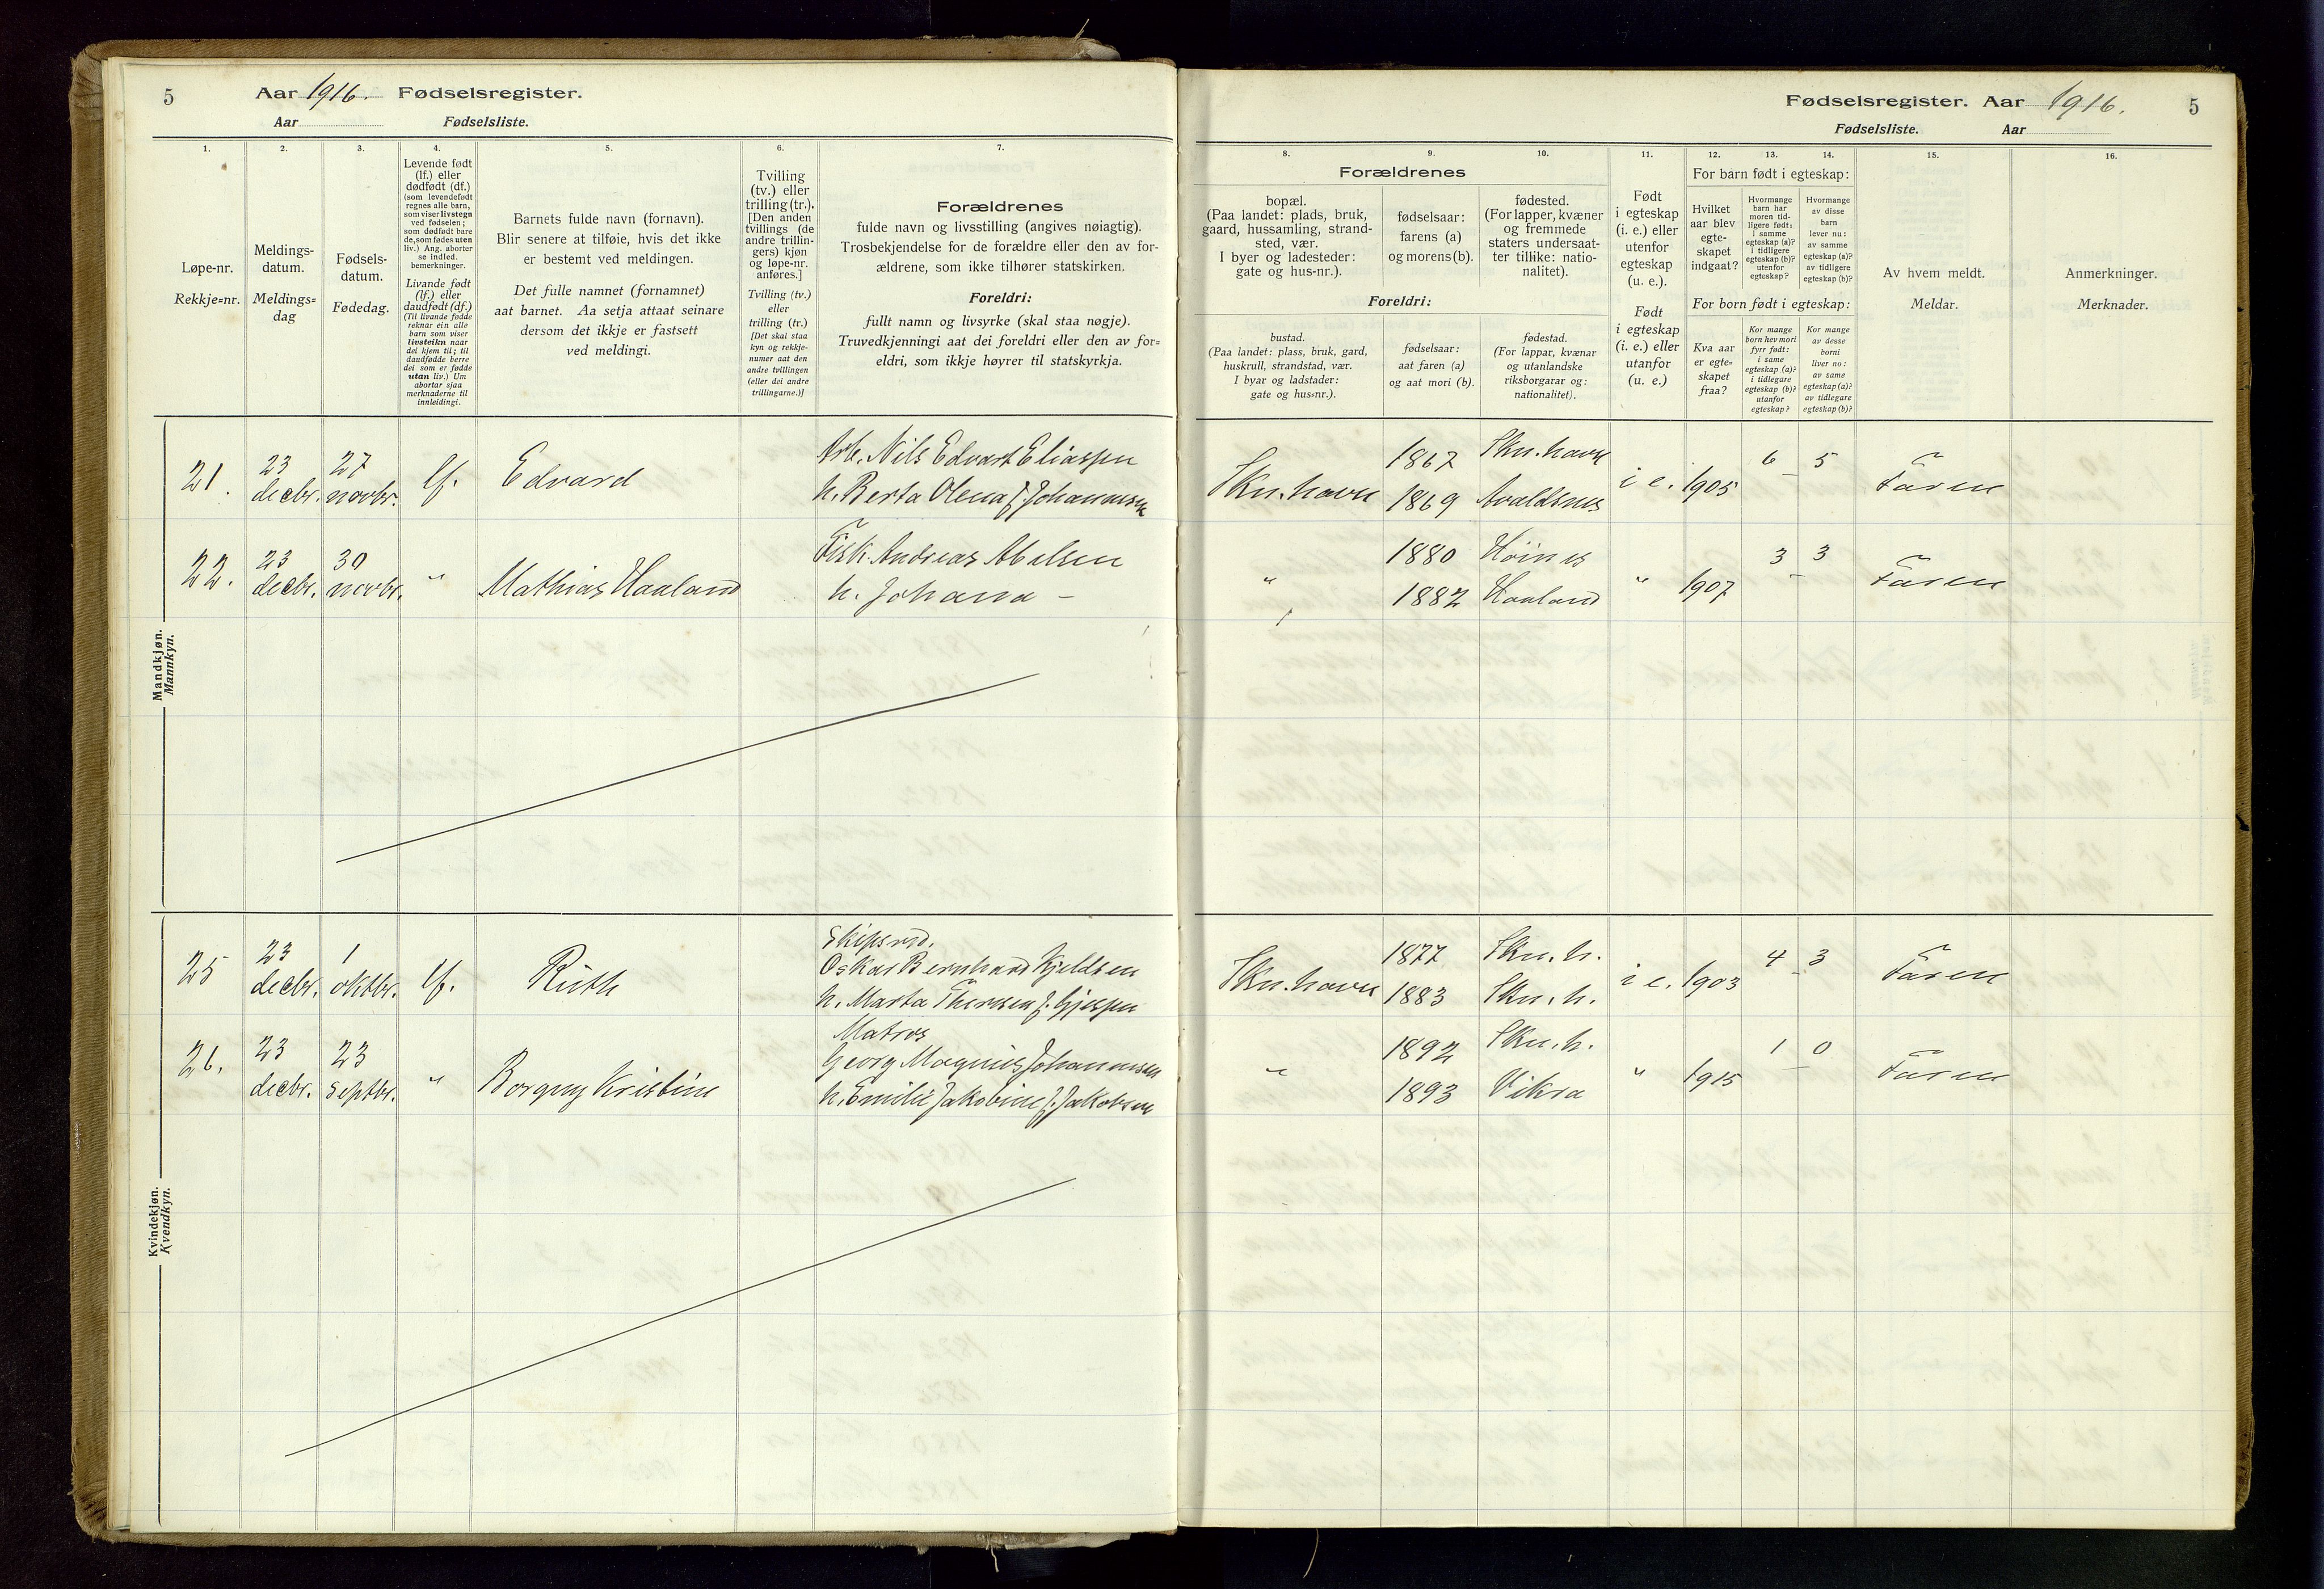 5 Aar 1916. Fødselsregister.
Aar Fødselsliste.
Fødselsregister. Aar 1916. 5
Fødselsliste. Aar
1. 2. 3. 4. 5. 6. 7.
Løpe-nr.
Rekkje=nr.
Meldings-
datum.
Meldings=
dag
Fødsels-
datum.
Fødedag.
Levende født
(lf.) eller
dødfødt (df.)
(som levendefødt
regnes alle barn,
som viser livstegn
ved fødselen;
som dødfødt bare
de, som fødes uten
liv.) Ang. aborter
se indled.
bemerkninger.
Livande født
(lf.) eller
daudfødt (df.)
(Til livande fødde
reknar ein alle
barn som viser
livsteikn naar
dei kjem til; til
daudfødde berre
dei som er fødde
utan liv.) Um
abortar sjaa
merknaderne til
innleidingi.
Barnets fulde navn (fornavn).
Blir senere at tilføie, hvis det ikke
er bestemt ved meldingen.
Det fulle namnet (fornamnet)
aat barnet. Aa setja attaat seinare
dersom det ikkje er fastsett
ved meldingi.
Tvilling
(tv.) eller
trilling (tr.).
[Den anden
tvillings (de
andre trillin-
gers) kjøn
og løpe-nr.
anføres.]
Tvilling (tv.)
eller
trilling (tr.)
[Det skal staa
kyn og rekkje-
numer aat den
andre tvillingen
(eller dei andre
trillingarne.)]
Forældrenes
fulde navn og livsstilling (angives nøiagtig).
Trosbekjendelse for de forældre eller den av for-
ældrene, som ikke tilhører statskirken.
Foreldri:
fullt namn og livsyrke (skal staa nøgje).
Truvedkjenningi aat dei foreldri eller den av for=
eldri, som ikkje høyrer til statskyrkja.
8. 9. 10. 11. 12. 13. 14. 15. 16.
Forældrenes
bopæl.
(Paa landet: plads, bruk,
gaard, hussamling, strand-
sted, vær.
I byer og ladesteder:
gate og hus-nr.).
fødselsaar:
farens (a)
og morens (b).
fødested.
(For lapper, kvæner
og fremmede
staters undersaat-
ter tillike: natio-
nalitet).
Foreldri:
bustad.
(Paa landet: plass, bruk, gard,
huskrull, strandstad, vær.
I byar og ladstader:
gate og hus=nr.).
fødselsaar:
aat faren (a)
og aat mori (b).
fødestad.
(For lappar, kvænar
og utanlandske
riksborgarar og:
nationalitet).
Født
i egteskap
(i. e.) eller
utenfor
egteskap
(u. e.).
Født
i egteskap
(i. e.) eller
utanfor
(u. e.)
For barn født i egteskap:
Hvilket
aar blev
egte-
skapet
indgaat?
Hvormange
barn har
moren tid-
ligere født:
i samme
egteskap (a)?
i tidligere
egteskap (b)?
utenfor
egteskap?
Hvormange
av disse
barn
lever nu:
av samme
egteskap (a)?
av tidligere
egteskap (b)?
For born født i egteskap:
Kva aar
er egte-
skapet
fraa?
Kor mange
born hev mori
fyrr født:
i same
egteskap (a)?
i tidlegare
egteskap (b)?
utanfor
egteskap?
Kor mange
av desse
borni
liver no:
av same
egteskap (a)?
av tidlegare
egteskap (b)?
Av hvem meldt.
Meldar.
Anmerkninger.
Merknader.
Mandkjøn.
Mannkyn.
21. 23 decbr. 27 novbr. lf. Edvard
Arb. Nils Edvart Eliassen
h. Berta Olena f. Johannesen
Skn.havn 1867 Skn.havn i e. 1905 6 – 5 Faren
1869 Avaldsnes
22. 23 decbr. 30 novbr. " Mathias Haaland
Fisk. Andreas Abelsen
h. Johana –
" 1880 Höines " 1907 3 – 3 Faren
1882 Haaland
Kvindekjøn.
Kvendkyn.
25 23 decbr. 1 oktbr. lf. Ruth
Skipsrd.
Oskar Bernhard Kjeldsen
h. Marta
Skn.havn 1877 Skn.h. i e. 1903 4 – 3 Faren
1883 Skn.h.
26. 23 decbr. 23 septbr. " Borgny Kristine
Matros
Georg Magnus Johannesen
h. Emilie Jakobine f. Jakobsen
" 1892 Skn.h. " 1915 1 – 0 Faren
1893 Vikra